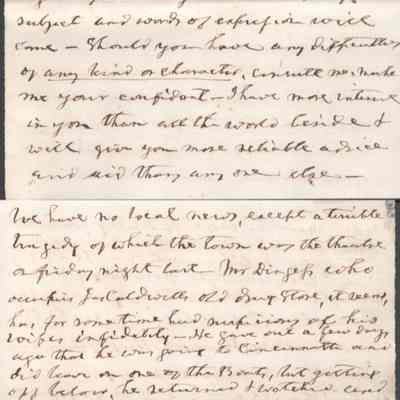 subject and words of expression will
come – Should you have any difficulties
of any kind or character, consult me, make
me your confidant – I have more interest
in you than all the world beside &
will give you more reliable advice
and aid than any one else –
We have no local news, except a terrible
tragedy of which the town was the theatre
on friday night last – Mr Dingess who
occupies Caldwells old drug Store, it seems,
has for some time had suspicions of his
wifes infidelity – He gave out a few days
ago that he was going to Cincinnatti and
did leave on one of the Boats, but getting
off below, he returned & watched and